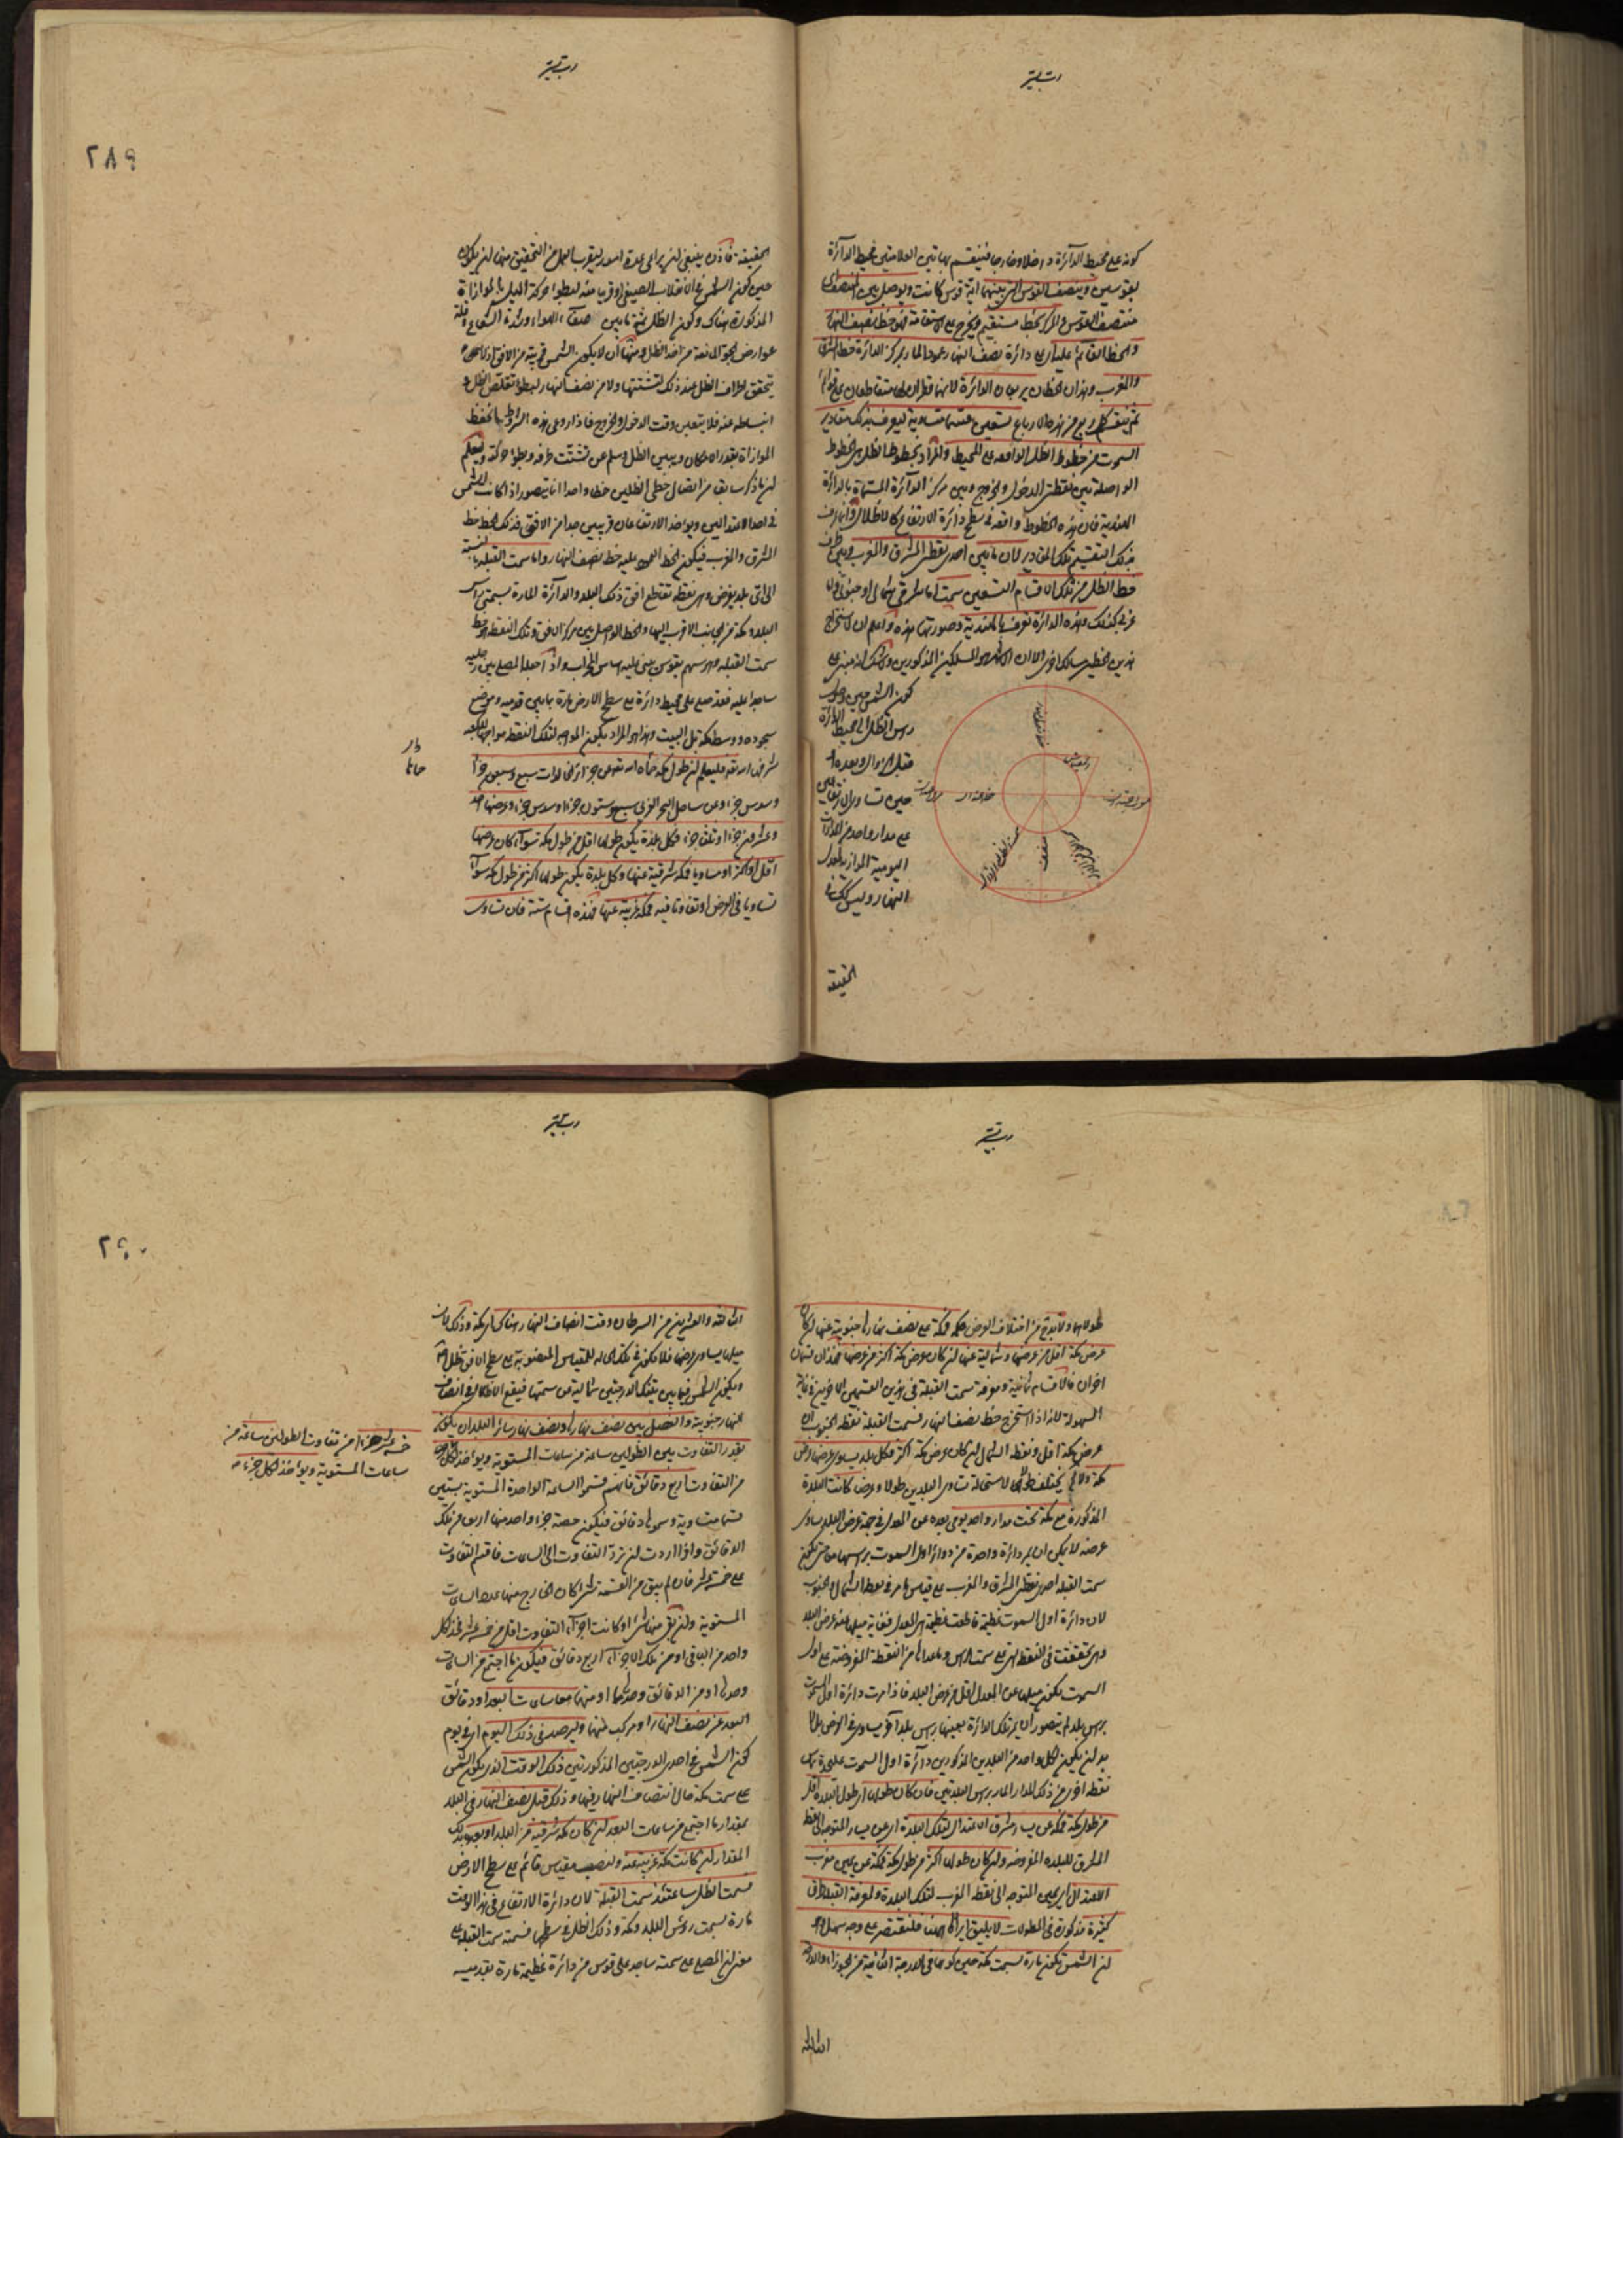 كونه على محيط الدائرة داخلا وخارجا فينقسم بهاتين العلامتين محيط الدائرة
بقوسين وينصف القوس التي بينهما اية قوس كانت ويوصل بين
منتصف القوس والمركز بخط مستقيم ويخرج على استقامته فهو خط نصف النهار
والخط القائم عليه اى على دائرة نصف النهار عمودا المار بمركز الدائرة خط المشرق
والمغرب وهذان الخطان يربعان الدائرة لانهما قطران لها متقاطعان على قوائم
ثم ينقسم كل ربع من هذه الارباع بتسعين قسمة متساوية ليعرف بذلك مقادير
السموت من خطوط الظل الواقعة على المحيط والمراد بخطوط الظل هى الخطوط
الواصلة بين نقطتى الدخول والخروج وبين مركز الدائرة المسماة بالدائرة
الهندية فان هذه الخطوط واقعة فى سطح دائرة الارتفاع كالاظلال وانما يعرف
بذلك التقسيم تلك المقادير لان ما بين احدى نقطتى المشرق والمغرب وبين طرف
خط الظل من تلك الاقسام التسعين سمت اما شرقى شمالى او جنوبى واما
غربى كذلك وهذه الدائرة تعرف بالهندية وصورتها هذه واعلم ان لاستخراج
هذين الخطين مسالك اخرى الا ان الاشهر هو المسلكين المذكورين ولا شك انه مبنى على
كون الشمس حين وصول
رأس الظل الى محيط الدائرة
قبل الزوال وبعده اى
حين تساوى الارتفاعين
على مدار واحد من المدارات
اليومية الموازية لمعدل
النهار وليس كذلك فى
الحقيقة
٢٨٩
الحقيقة فاذن ينبغى ان يراعى عدة امور ليقرب العمل من التحقيق منها ان يكون
حين كون الشمس فى الانقلاب الصيفى او قريبا منه لبطوء حركة الميل بالموازاة
المذكورة هناك وكون الظل ثمة ما بين صفاء الهواء وشدة الشعاع وقلة
عوارض الجو المانعة من اخذ الظل ومنها ان لا يكون الشمس قريبة من الافق اذ
يتحقق اطراف الظل عند ذلك لتشتتها ولا من نصف النهار لبطؤ تقلص الظل و
انبساطه عنده فلا يتعين وقت الدخول والخروج فاذا روعى هذه الشرائط انحفظ
الموازاة بقدر الامكان وتبين الظل وسلم عن تشتت طرفه وبطؤ حركته وليعلم
ان ما ذكر سابقا من اتصال خطى الظلين خطا واحدا انما يتصور اذا كانت الشمس
فى احد الاعتدالين ويؤخذ الارتفاعان قريبين جدا من الافق فذلك الخط خط
المشرق والمغرب فيكون الخط العمود عليه خط نصف النهار واما سمت القبلة بالنسبة
الى اى بلد يفرض وهى نقطة تقاطع افق ذلك البلد والدائرة المارة بسمتى رأس
البلد ومكة من الجانب الاقرب اليها والخط الواصل بين مركز الافق وتلك النقطة هو خط
سمت القبلة وهو سهم القوس يبنى عليه اساس المحراب واذا جعله المصلى بين رجليه
ساجدا عليه فقد صلى على محيط دائرة على سطح الارض مارة بما بين قدميه وموضع
سجوده ووسط مكة بل البيت وهذا هو المراد بكون المواجه لتلك النقطة مواجها للكعبة
شرفها الله تعالى فليعلم ان طول مكة حماها الله تعالى عن جزائر الخالدات سبع وسبعون جزأ
وسدس جزء وعن ساحل البحر الغربى سبع وستون جزءا وسدس جزء وعرضها احد
وعشرون جزءا وثلثى جزء فكل بلدة يكون طولها اقل من طول مكة سواء كان عرضها
اقل او اكثر او مساويا فمكة شرقية عنها وكل بلدة يكون طولها اكثر من طول مكة سواء
تساويا فى العرض او تفاوتا فيه فمكة غربية عنها فهذه اقسام ستة فان تساوى
طولاهما ولابد ثم من اختلاف العرض بحكم فمكة على نصف نهارها جنوبية عنها ان كان
عرض مكة اقل من عرضها وشمالية عنها ان كان عرض مكة اكثر من عرضها فهذان قسمان
اخران فالاقسام ثمانية ومعرفة سمت القبلة فى هذين القسمين الاخيرين فى غاية
السهولة لانه اذا استخرج خط نصف النهار فسمت القبلة نقطة الجنوب ان
عرض مكة اقل ونقطة الشمال ان كان عرض مكة اكثر فكل بلد يساوى عرضها عرض
مكة ولا يختلف طولهما لاستحالة تساوى البلدين طولا وعرضا كانت البلدة
المذكورة مع مكة تحت مدار واحد يومى بعده عن المعدل فى جهة عرض البلد يساوى
عرضه لا يمكن ان يمر دائرة واحدة من دوائر اول السموت برأسيهما حتى يكون
سمت القبلة احدى نقطتى المشرق والمغرب على قياس ما مر فى نقطتى الشمال والجنوب
لان دائرة اول السموت عظيمة قاطعت عظيمة هى المعدل فغاية ميلها عنه عرض البلد
وهى تحققت فى النقطة التى على سمت الرأس وما عداها من النقطة المفروضة على اول
السموت يكون ميلها عن المعدل اقل من عرض البلد فاذا مرت دائرة اول السموت
برأس بلد لم يتصور ان يمر تلك الدائرة بعينها برأس بلد آخر يساوى فى العرض
بل ان يكون لكل واحد من البلدين المذكورين دائرة اول السموت على حدة تماس
نقطة اخرى من ذلك المدار المار برأس البلدتين فان كان طولها اى طول البلدة اقل
من طول مكة فمكة عن يسار مشرق الاعتدال لتلك البلدة اى عن يسار المتوجه الى نقطة
المشرق للبلدة المفروضة وان كان طولها اكثر من طول مكة فمكة عن يمين مغرب
الاعتدال اى يمين المتوجه الى نقطة المغرب لتلك البلدة ولمعرفة القبلة طرق
كثيرة مذكورة فى المطولات لا يليق ايرادها ههنا فلنقتصر على وجه سهل وهو
ان الشمس تكون مارة بسمت مكة حين كونها فى الدرجة الثامنة من الجوزاء والدرجة
الثالثة
٢٩٠
الثالثة والعشرين من السرطان وقت انتصاف النهار هناك اى بمكة وذلك لان
ميلها يساوى عرضها فلا يكون فى تلك الحالة للمقياس المنصوبة على سطح الافق ظل
ويكون الشمس فيما بين تينك الدرجتين شمالية عن سمتها فيقع الاظلال فى انتصاف
النهار جنوبية والفضل بين نصف نهارها ونصف نهار سائر البلدان يكون
بقدر التفاوت بين الطولين ساعة من ساعات المستوية ويؤخذ لكل جزء
من التفاوت اربع دقائق فانهم قسموا الساعة الواحدة المستوية بستين
قسما متساوية وسموها دقائق فيكون حصة جزء واحد منها اربعا من تلك
الدقائق واذا اردت ان ترد التفاوت الى الساعات فاقسم التفاوت
على خمسة عشر فان لم يبق من القسمة شئ كان الخارج منها عدد الساعات
المستوية وان بقى منها شئ او كانت اجزاء التفاوت اقل من خمسة عشر فخذ لكل
واحد من الباقى او من تلك الاجزاء اربع دقائق فيكون ما اجتمع من الساعات
وحدها او من الدقائق وحدها او منهما معا ساعات البعد او دقائق
البعد عن نصف النهار او مركب منهما وليرصد فى ذلك اليوم اى فى يوم
كون الشمس فى احدى الدرجتين المذكورتين ذلك الوقت الذى يكون الشمس
على سمت مكة حال انتصاف النهار فيها وذلك قبل نصف النهار فى البلد
بمقدار ما اجتمع من ساعات البعد ان كان مكة شرقية من البلد او بعده بذلك
المقدار ان كانت مكة غربية عنه ولينصب مقياس قائم على سطح الارض
فسمت الظل ساعتئذ سمت القبلة لان دائرة الارتفاع فى هذا الوقت
مارة بسمت رؤس البلد ومكة وذلك الظل فى سطحها فسمته سمت القبلة على
معنى ان المصلى على سمته ساجد على قوس من دائرة عظيمة مارة بقدميه
خمسة عشر جزءا من تفاوت الطولين ساعة من
ساعات المستوية ويؤخذ لكل جزء